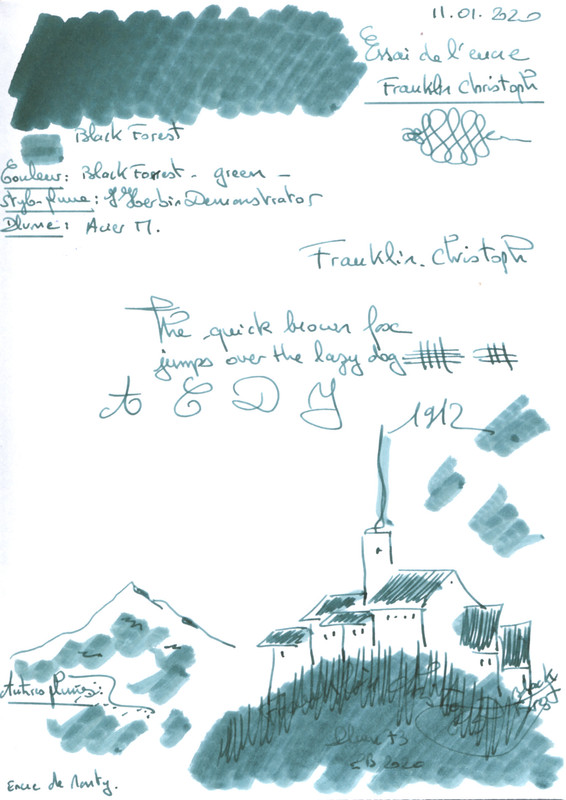 11.01.2020
Essai de l'encre
Franklin Christoph
Black Forest
Couleur: Black Forrest - green -
Stylo-plume: J. Herbin Demonstrator
Plume: Acier M.
Franklin. Christoph
The quick brown fox
jumps over the lazy dog
A E D J
1912
Autres plumes:
Black
Forest
Plume
2020
Encre de Monty.